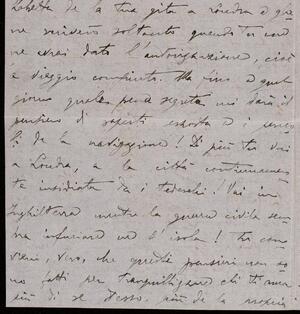 della tua gita a Londra a
soltanto quando tu
ne avrai dato l'autorizzazione cioè
a viaggio compiuto. Ma fino a quel
giorno quale pena segreta mi darà il
pensiero di saperti esposta a i
della navigazione! Di più tu vai
a Londra, a la città continuamente
insidiata da i tedeschi! Vai in
Inghilterra mentre la guerra civile
infuriare ne l'isola! Tu
vero, che questi pensieri non
fatti per tranquillizzare chi ti ama
più di se stesso, più de la propria